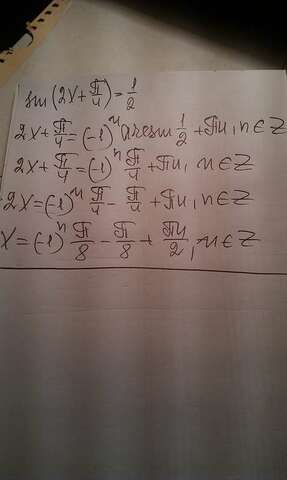 sin (2x + π/4) = 1/2
2x + π/4 = (-1)ⁿ arcsin 1/2 + πn, n ∈ Z
2x + π/4 = (-1)ⁿ π/4 + πn, n ∈ Z
2x = (-1)ⁿ π/4 - π/4 + πn, n ∈ Z
x = (-1)ⁿ π/8 - π/8 + πn/2, n ∈ Z